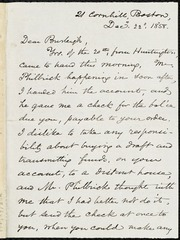 21 Cornhill, Boston,
Dec. 22d, 1858.
Dear Burleigh,
Yrs. of the 20th, from Huntington
came to hand this morning. Mr.
Philbrick happening in soon after
I handed him the account, and
he gave me a check for the balance
due you, payable to your order.
I dislike to take any responsi-
bility about buying a Draft and
transmitting funds, on your
account, to a distant house,
and Mr. Philbrick thought with
me that I had better not do it,
but send the check at once to
you, when you could make any